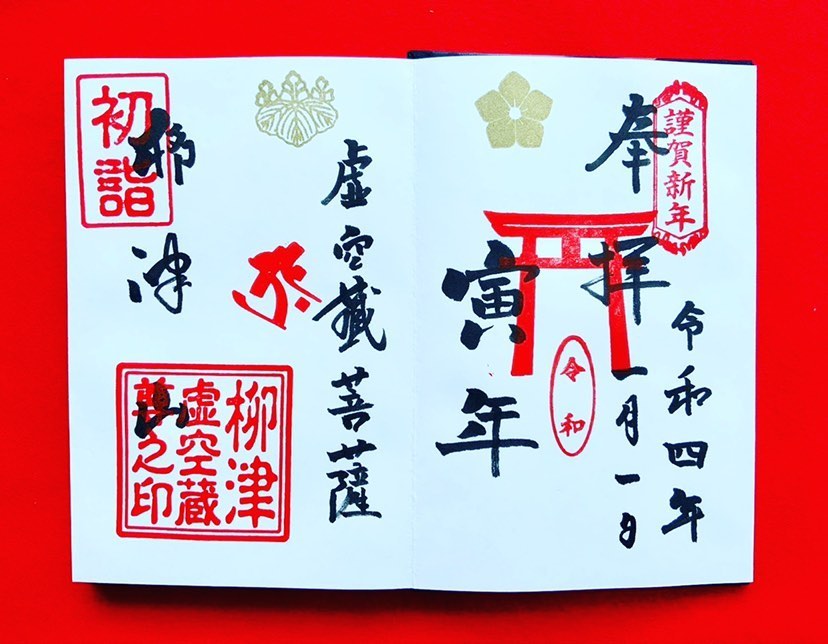 謹賀新年
奉拝
令和四年
一月一日
令和
寅年
虚空藏菩薩
初詣
柳津山
柳津
虚空蔵
尊之印